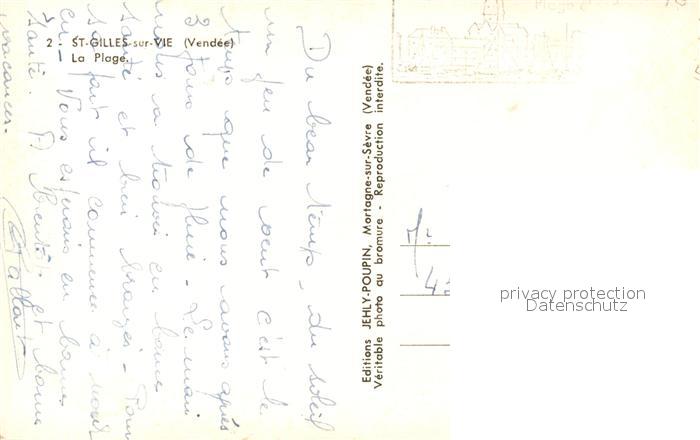 2 - ST-GILLES-sur-VIE (Vendée)
La Plage.
Du beau temps, du soleil
un peu de vent c'est le
temps que nous avons après
3 jours de pluie - Le mari
nous a trouvé en bonne
santé et bien bronzés - Pour
sa part il commence à
Vous espérons en bonne
santé. A Bientôt et bonne
vacances.
Editions JEHLY-POUPIN, Mortagne-sur-Sèvre (Vendée)
Véritable photo au bromure - Reproduction interdite.
Plage
privacy protection
Datenschutz